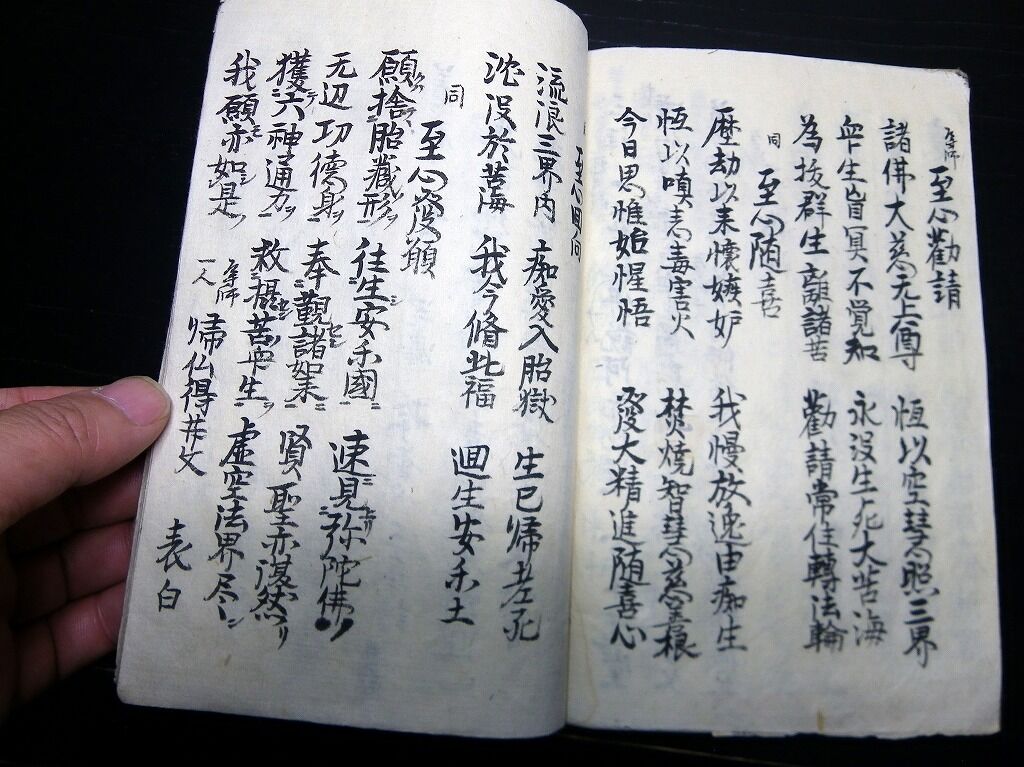 至心勸請
諸佛大慈无上尊 恆以空慧照三界
衆生盲冥不覚知 永没生死大苦海
為抜群生離諸苦 勸請常住轉法輪
同 至心随喜
歴劫以来懐嫉妒 我慢放逸由痴生
恆以嗔恚毒害火 焚焼智慧慈善根
今日思惟始惺悟 發大精進随喜心
至心囬向
流浪三界内 痴愛入胎獄 生已帰老死
沈没於苦海 我今脩此福 廻生安楽土
同 至心發願
願捨胎蔵形 往生安楽國 速見弥陀佛
无辺功徳身 奉觀諸如来 賢聖亦復然
獲六神通力 救摂苦衆生 虚空法界尽
我願亦如是 一人 帰仏得井文 表白